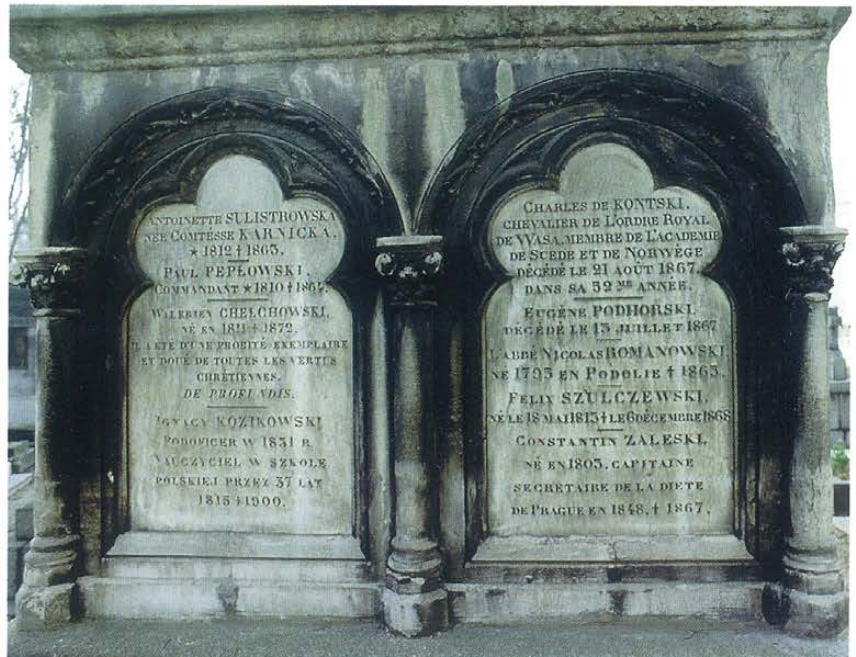 ANTOINETTE SULISTROWSKA
NÉE COMTESSE KARNICKA.
★ 1812 † 1863.
PAUL PEPŁOWSKI,
COMMANDANT ★ 1810 † 1864.
WALERIEN CHEŁCHOWSKI,
NÉ EN 1811 † 1872.
IL A ÉTÉ D'UNE PROBITÉ EXEMPLAIRE
ET DOUÉ DE TOUTES LES VERTUS
CHRÉTIENNES.
DE PROFUNDIS.
IGNACY KOZIKOWSKI
PODOFICER W 1831 R.
NAUCZYCIEL W SZKOLE
POLSKIEJ PRZEZ 37 LAT
1815 † 1900.
CHARLES DE KONTSKI,
CHEVALIER DE L'ORDRE ROYAL
DE WASA, MEMBRE DE L'ACADEMIE
DE SUEDE ET DE NORWÈGE
DÉCÉDÉ LE 21 AOÛT 1867.
DANS SA 52 ME ANNÉE.
EUGÈNE PODHORSKI,
DÉCÉDÉ LE 13 JUILLET 1867
L'ABBÉ NICOLAS ROMANOWSKI,
NÉ 1793 EN PODOLIE † 1863.
FELIX SZULCZEWSKI,
NÉ LE 18 MAI 1813 † LE 6 DÉCEMBRE 1868
CONSTANTIN ZALESKI,
NÉ EN 1803, CAPITAINE
SECRETAIRE DE LA DIETE
DE PRAGUE EN 1848, † 1867.